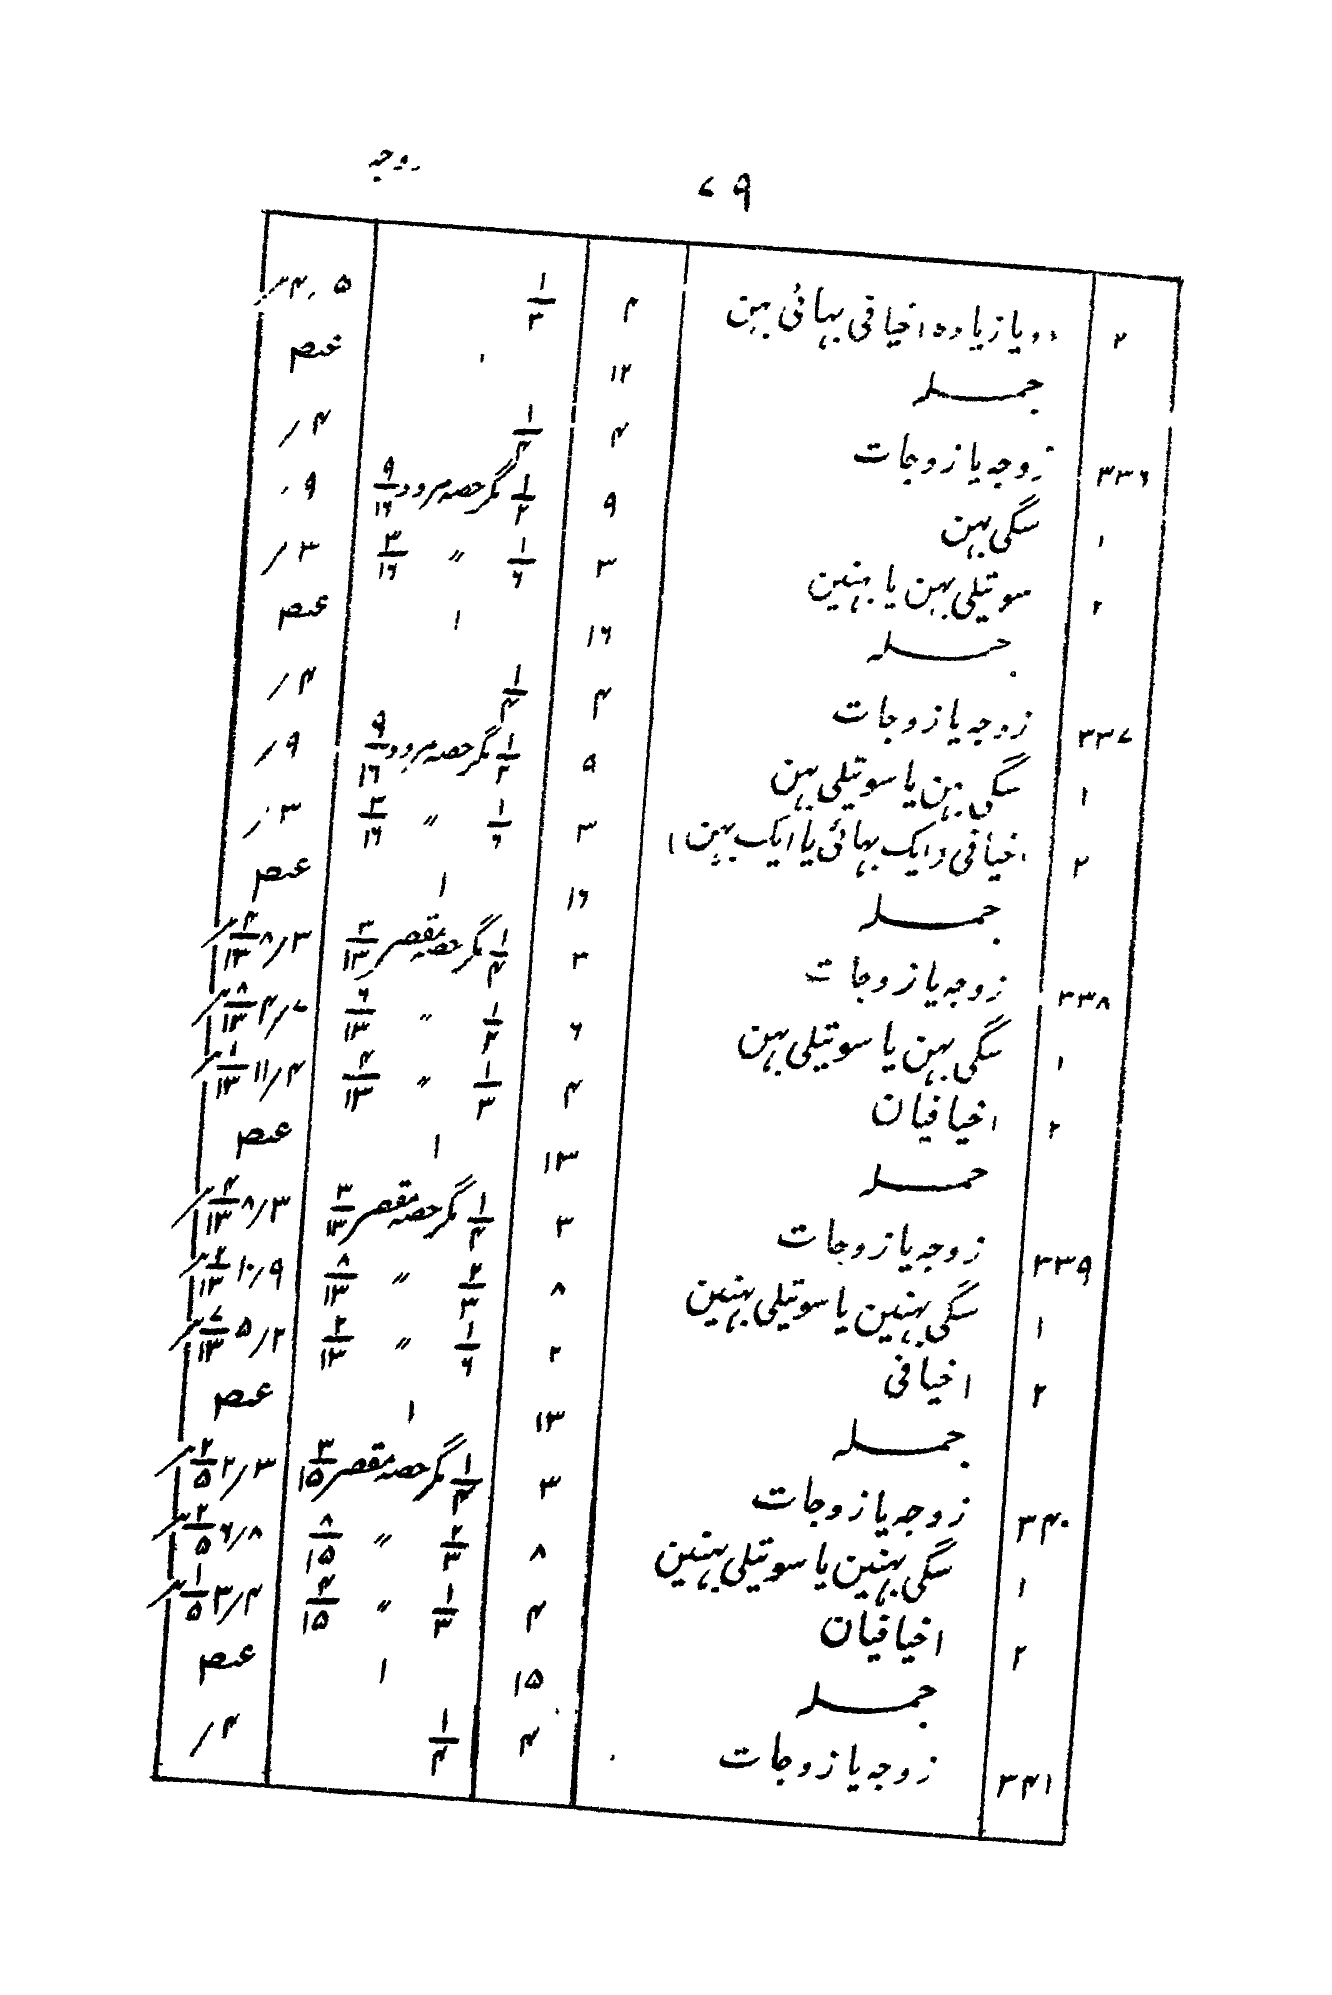 ۷۹ زوجہ
۲ دو یا زیادہ اخیافی بہائی بہن ۴ ۱/۳ ۵ر۴
جملہ ۱۲ ۱ عہ
۳۳۶ زوجہ یا زوجات ۴ ۱/۴ ۴ر
۱ سگی بہن ۹ ۱/۲ مگر حصہ مردود ۹/۱۶ ۹ر
۲ سوتیلی بہن یا بہنین ۳ ۱/۶ ״ ۳/۱۶ ۳ر
جملہ ۱۶ ۱ عہ
۳۳۷ زوجہ یا زوجات ۴ ۱/۴ ۴ر
۱ سگی بہن یا سوتیلی بہن ۹ ۱/۲ مگر حصہ مردود ۹/۱۶ ۹ر
۲ اخیافی (ایک بہائی یا ایک بہن) ۳ ۱/۶ ״ ۳/۱۶ ۳ر
جملہ ۱۶ ۱ عہ
۳۳۸ زوجہ یا زوجات ۳ ۱/۴ مگر حصہ مقصر ۳/۱۳ ۳ر۸ ۴/۱۳
۱ سگی بہن یا سوتیلی بہن ۶ ۱/۲ ״ ۶/۱۳ ۷ر۴ ۸/۱۳
۲ اخیافیان ۴ ۱/۳ ״ ۴/۱۳ ۴ر۱۱ ۱/۱۳
جملہ ۱۳ ۱ عہ
۳۳۹ زوجہ یا زوجات ۳ ۱/۴ مگر حصہ مقصر ۳/۱۳ ۳ر۸ ۴/۱۳
۱ سگی بہنین یا سوتیلی بہنین ۸ ۲/۳ ״ ۸/۱۳ ۹ر۱۰ ۲/۱۳
۲ اخیافی ۲ ۱/۶ ״ ۲/۱۳ ۲ر۵ ۷/۱۳
جملہ ۱۳ ۱ عہ
۳۴۰ زوجہ یا زوجات ۳ ۱/۴ مگر حصہ مقصر ۳/۱۵ ۳ر۲ ۲/۵
۱ سگی بہنین یا سوتیلی بہنین ۸ ۲/۳ ״ ۸/۱۵ ۸ر۶ ۲/۵
۲ اخیافیان ۴ ۱/۳ ״ ۴/۱۵ ۴ر۳ ۱/۵
جملہ ۱۵ ۱ عہ
۳۴۱ زوجہ یا زوجات ۴ ۱/۴ ۴ر